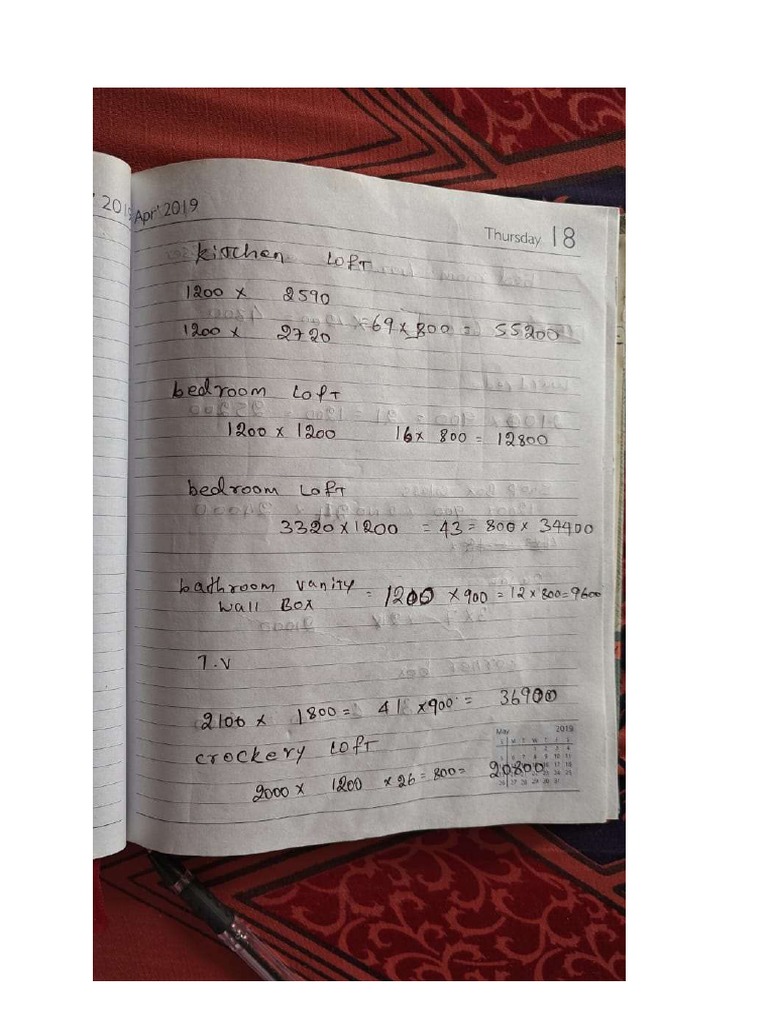 Apr' 2019
Thursday 18
kitchen LOFT
1200 x 2590
1200 x 2720 = 69 x 800 = 55200
bedroom LOFT
1200 x 1200 16 x 800 = 12800
bedroom LOFT
3320 x 1200 = 43 = 800 x 34400
bathroom vanity
wall BOX = 1200 x 900 = 12 x 800 = 9600
T.V
2100 x 1800 = 41 x 900 = 36900
crockery LOFT
2000 x 1200 x 26 = 800 = 20800
May 2019